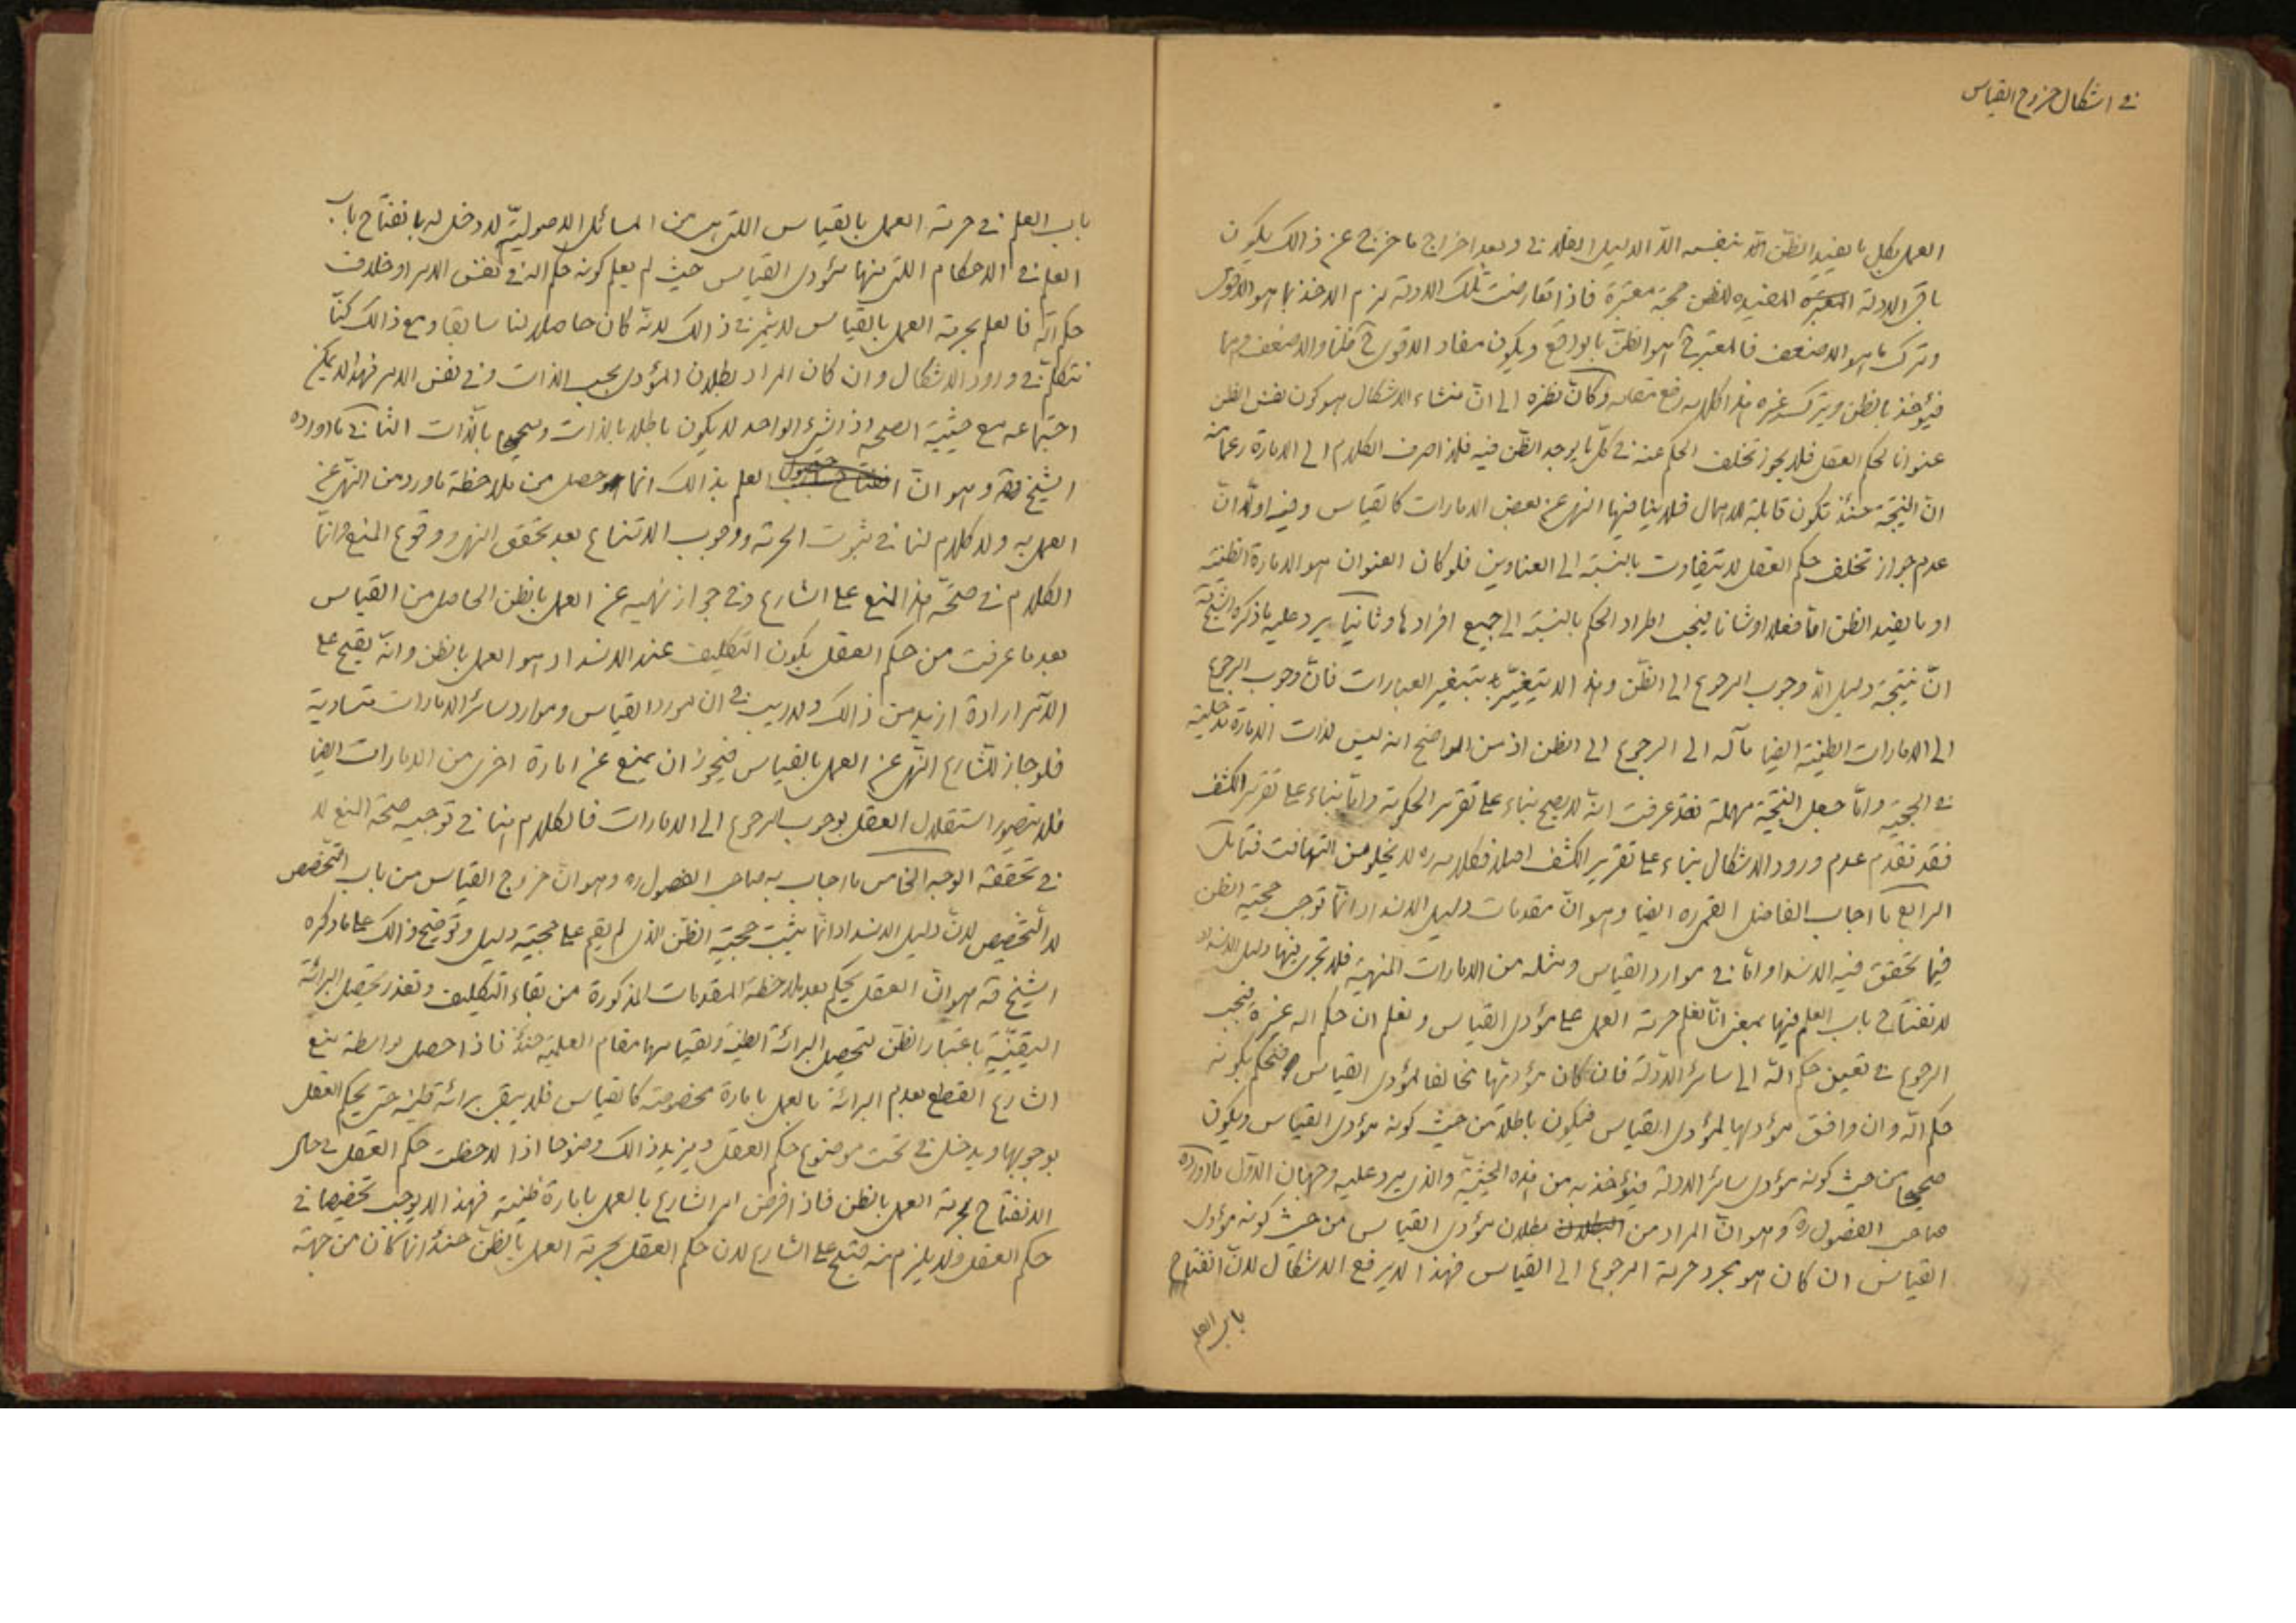 في اشكال خروج القياس
العمل بكل ما يفيد الظن الذي نفيه الا الدليل العقلاني وبعد اخراج ما خرج عن ذالك يكون
باقي الادلة المفيدة للظن حجة معتبرة فاذا تعارضت تلك الادلة لزم الاخذ بما هو الاقوى
وترك ما هو الاضعف فالمعتبر ح هو الظن بالواقع ويكون مفاد الاقوى ح ظنا والاضعف وهما
فيؤخذ بالظن ويترك غيره هذا كلامه رفع مقامه وكان نظره الى ان منشاء الاشكال هو كون نفس الظن
عنوانا لحكم العقل فلا يجوز تخلف الحكم عنه في كل ما يوجد الظن فيه فلذا صرف الكلام الى الامارة زعما منه
ان النتيجة حينئذ تكون قابلة للاهمال فلا ينافيها النهي عن بعض الامارات كالقياس وفيه اولا ان
عدم جواز تخلف حكم العقل لا يتفاوت بالنسبة الى العناوين فلو كان العنوان هو الامارة الظنية
او ما يفيد الظن اما فعلا او شانا فيجب اطراد الحكم بالنسبة الى جميع افرادها وثانيا يرد عليه ما ذكره الشيخ قه
ان نتيجة دليله الا وجوب الرجوع الى الظن وهذا لا يتغير بتغيير العبارات فان وجوب الرجوع
الى الامارات الظنية ايضا مآله الى الرجوع الى الظن اذ من الواضح انه ليس لذات الامارة مدخلية
في الحجية واما جعل النتيجة مهملة فقد عرفت انه لا يصح بناء على تقرير الحكومة واما بناء على تقرير الكشف
فقد تقدم عدم ورود الاشكال بناء على تقرير الكشف اصلا فكلامه ره لا يخلو من التهافت فتامل
الرابع ما اجاب الفاضل القمي ره ايضا وهو ان مقدمات دليل الانسداد انما توجب حجية الظن
فيما تحقق فيه الانسداد واما في موارد القياس ومثله من الامارات المنهية فلا تجري فيها دليل الانسداد
لانفتاح باب العلم فيها بمعنى انا نعلم حرمة العمل على مؤدى القياس ونعلم ان حكم الله غيره فيجب
الرجوع في تعيين حكم الله الى سائر الادلة فان كان مؤديها مخالفا لمؤدى القياس فنحكم بكونه
حكم الله وان وافق مؤديها لمؤدى القياس فيكون باطلا من حيث كونه مؤدى القياس ويكون
صحيحا من حيث كونه مؤدى سائر الادلة فيؤخذ به من هذه الحيثية والذي يرد عليه وجهان الاول ما اورده
صاحب الفصول ره وهو ان المراد من بطلان مؤدى القياس من حيث كونه مؤدى
القياس ان كان هو مجرد حرمة الرجوع الى القياس فهذا لا يرفع الاشكال لان انفتاح
باب العلم
باب العلم في حرمة العمل بالقياس التي هي من المسائل الاصولية لا دخل له بانفتاح باب
العلم في الاحكام التي منها مؤدى القياس حيث لم يعلم كونه حكم الله في نفس الامر او خلاف
حكم الله فالعلم بحرمة العمل بالقياس لا يثمر في ذالك لانه كان حاصلا لنا سابقا ومع ذالك كنا
نتكلم في ورود الاشكال وان كان المراد بطلان المؤدى بحسب الذات وفي نفس الامر فهذا لا يمكن
اجتماعه مع حيثية الصحة اذ الشيء الواحد لا يكون باطلا بالذات وصحيحا بالذات الثاني ما اورده
الشيخ قه وهو ان العلم بذالك انما حصل من ملاحظة ما ورد من النهي عن
العمل به ولا كلام لنا في ثبوت الحرمة ووجوب الامتناع بعد تحقق النهي ووقوع المنع وانما
الكلام في صحة هذا المنع على الشارع وفي جواز نهيه عن العمل بالظن الحاصل من القياس
بعد ما عرفت من حكم العقل بكون التكليف عند الانسداد هو العمل بالظن وانه يقبح على
الآمر ارادة ازيد من ذالك ولا ريب في ان مورد القياس وموارد سائر الامارات متساوية
فلو جاز للشارع النهي عن العمل بالقياس فيجوز ان يمنع عن امارة اخرى من الامارات ايضا
فلا يتصور استقلال العقل بوجوب الرجوع الى الامارات فالكلام هنا في توجيه صحة المنع لا
في تحققه الوجه الخامس ما اجاب به صاحب الفصول ره وهو ان خروج القياس من باب التخصص
لا التخصيص لان دليل الانسداد انما يثبت حجية الظن الذي لم يقم على حجيته دليل وتوضيح ذالك على ما ذكره
الشيخ قه هو ان العقل يحكم بعد ملاحظة المقدمات المذكورة من بقاء التكليف وتعذر تحصيل البرائة
اليقينية باعتبار الظن لتحصيل البرائة الظنية وبقيامها مقام العلمية حينئذ فاذا حصل بواسطة منع
الشارع القطع بعدم البرائة بالعمل بامارة مخصوصة كالقياس فلا يبقى برائة ظنية حتى يحكم العقل
بوجوبها ويدخل في تحت موضوع حكم العقل ويزيد ذالك وضوحا اذا لاحظت حكم العقل في حال
الانفتاح بحرمة العمل بالظن فاذا فرض امر الشارع بالعمل بامارة ظنية فهذا لا يوجب تخصيصا في
حكم العقل ولا يلزم منه قبح على الشارع لان حكم العقل بحرمة العمل بالظن حينئذ انما كان من جهة